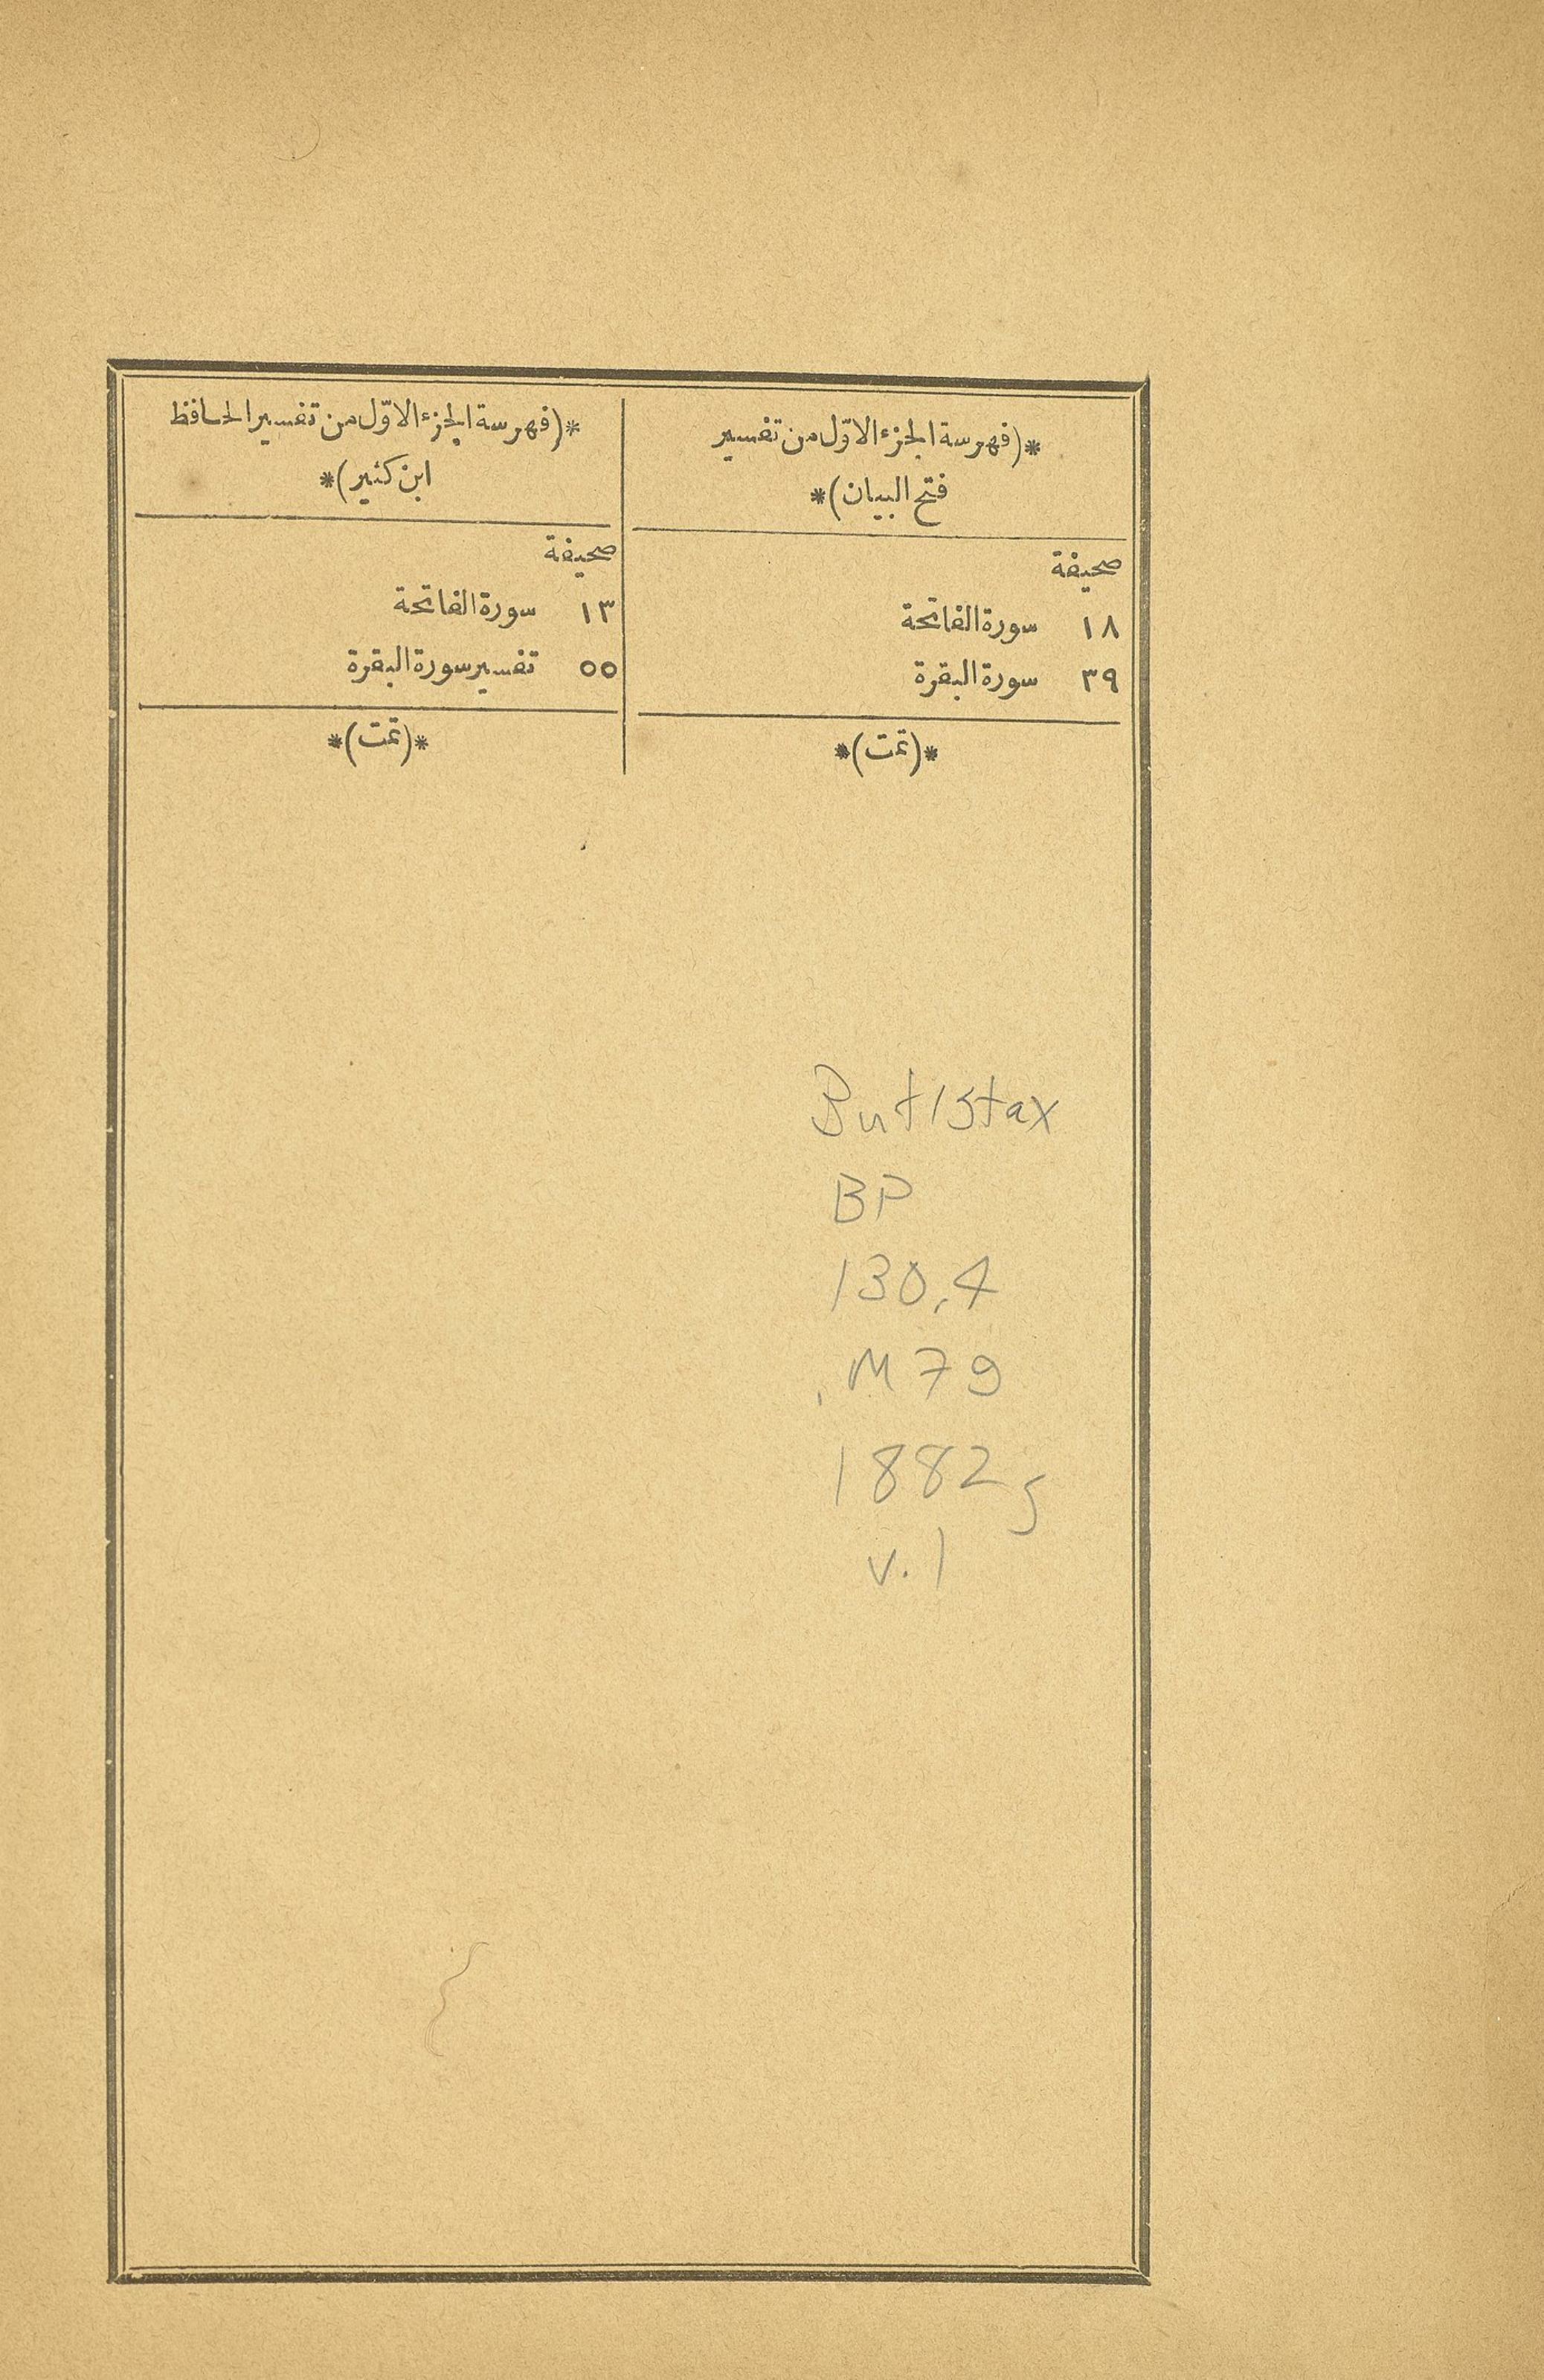 *(فهرسة الجزء الاوّل من تفسير
فتح البيان)*
صحيفة
١٨ سورة الفاتحة
٣٩ سورة البقرة
*(تمت)*
*(فهرسة الجزء الاوّل من تفسير الحافظ
ابن كثير)*
صحيفة
١٣ سورة الفاتحة
٥٥ تفسير سورة البقرة
*(تمت)*
BP
130.4
.M79
1882g
v.1